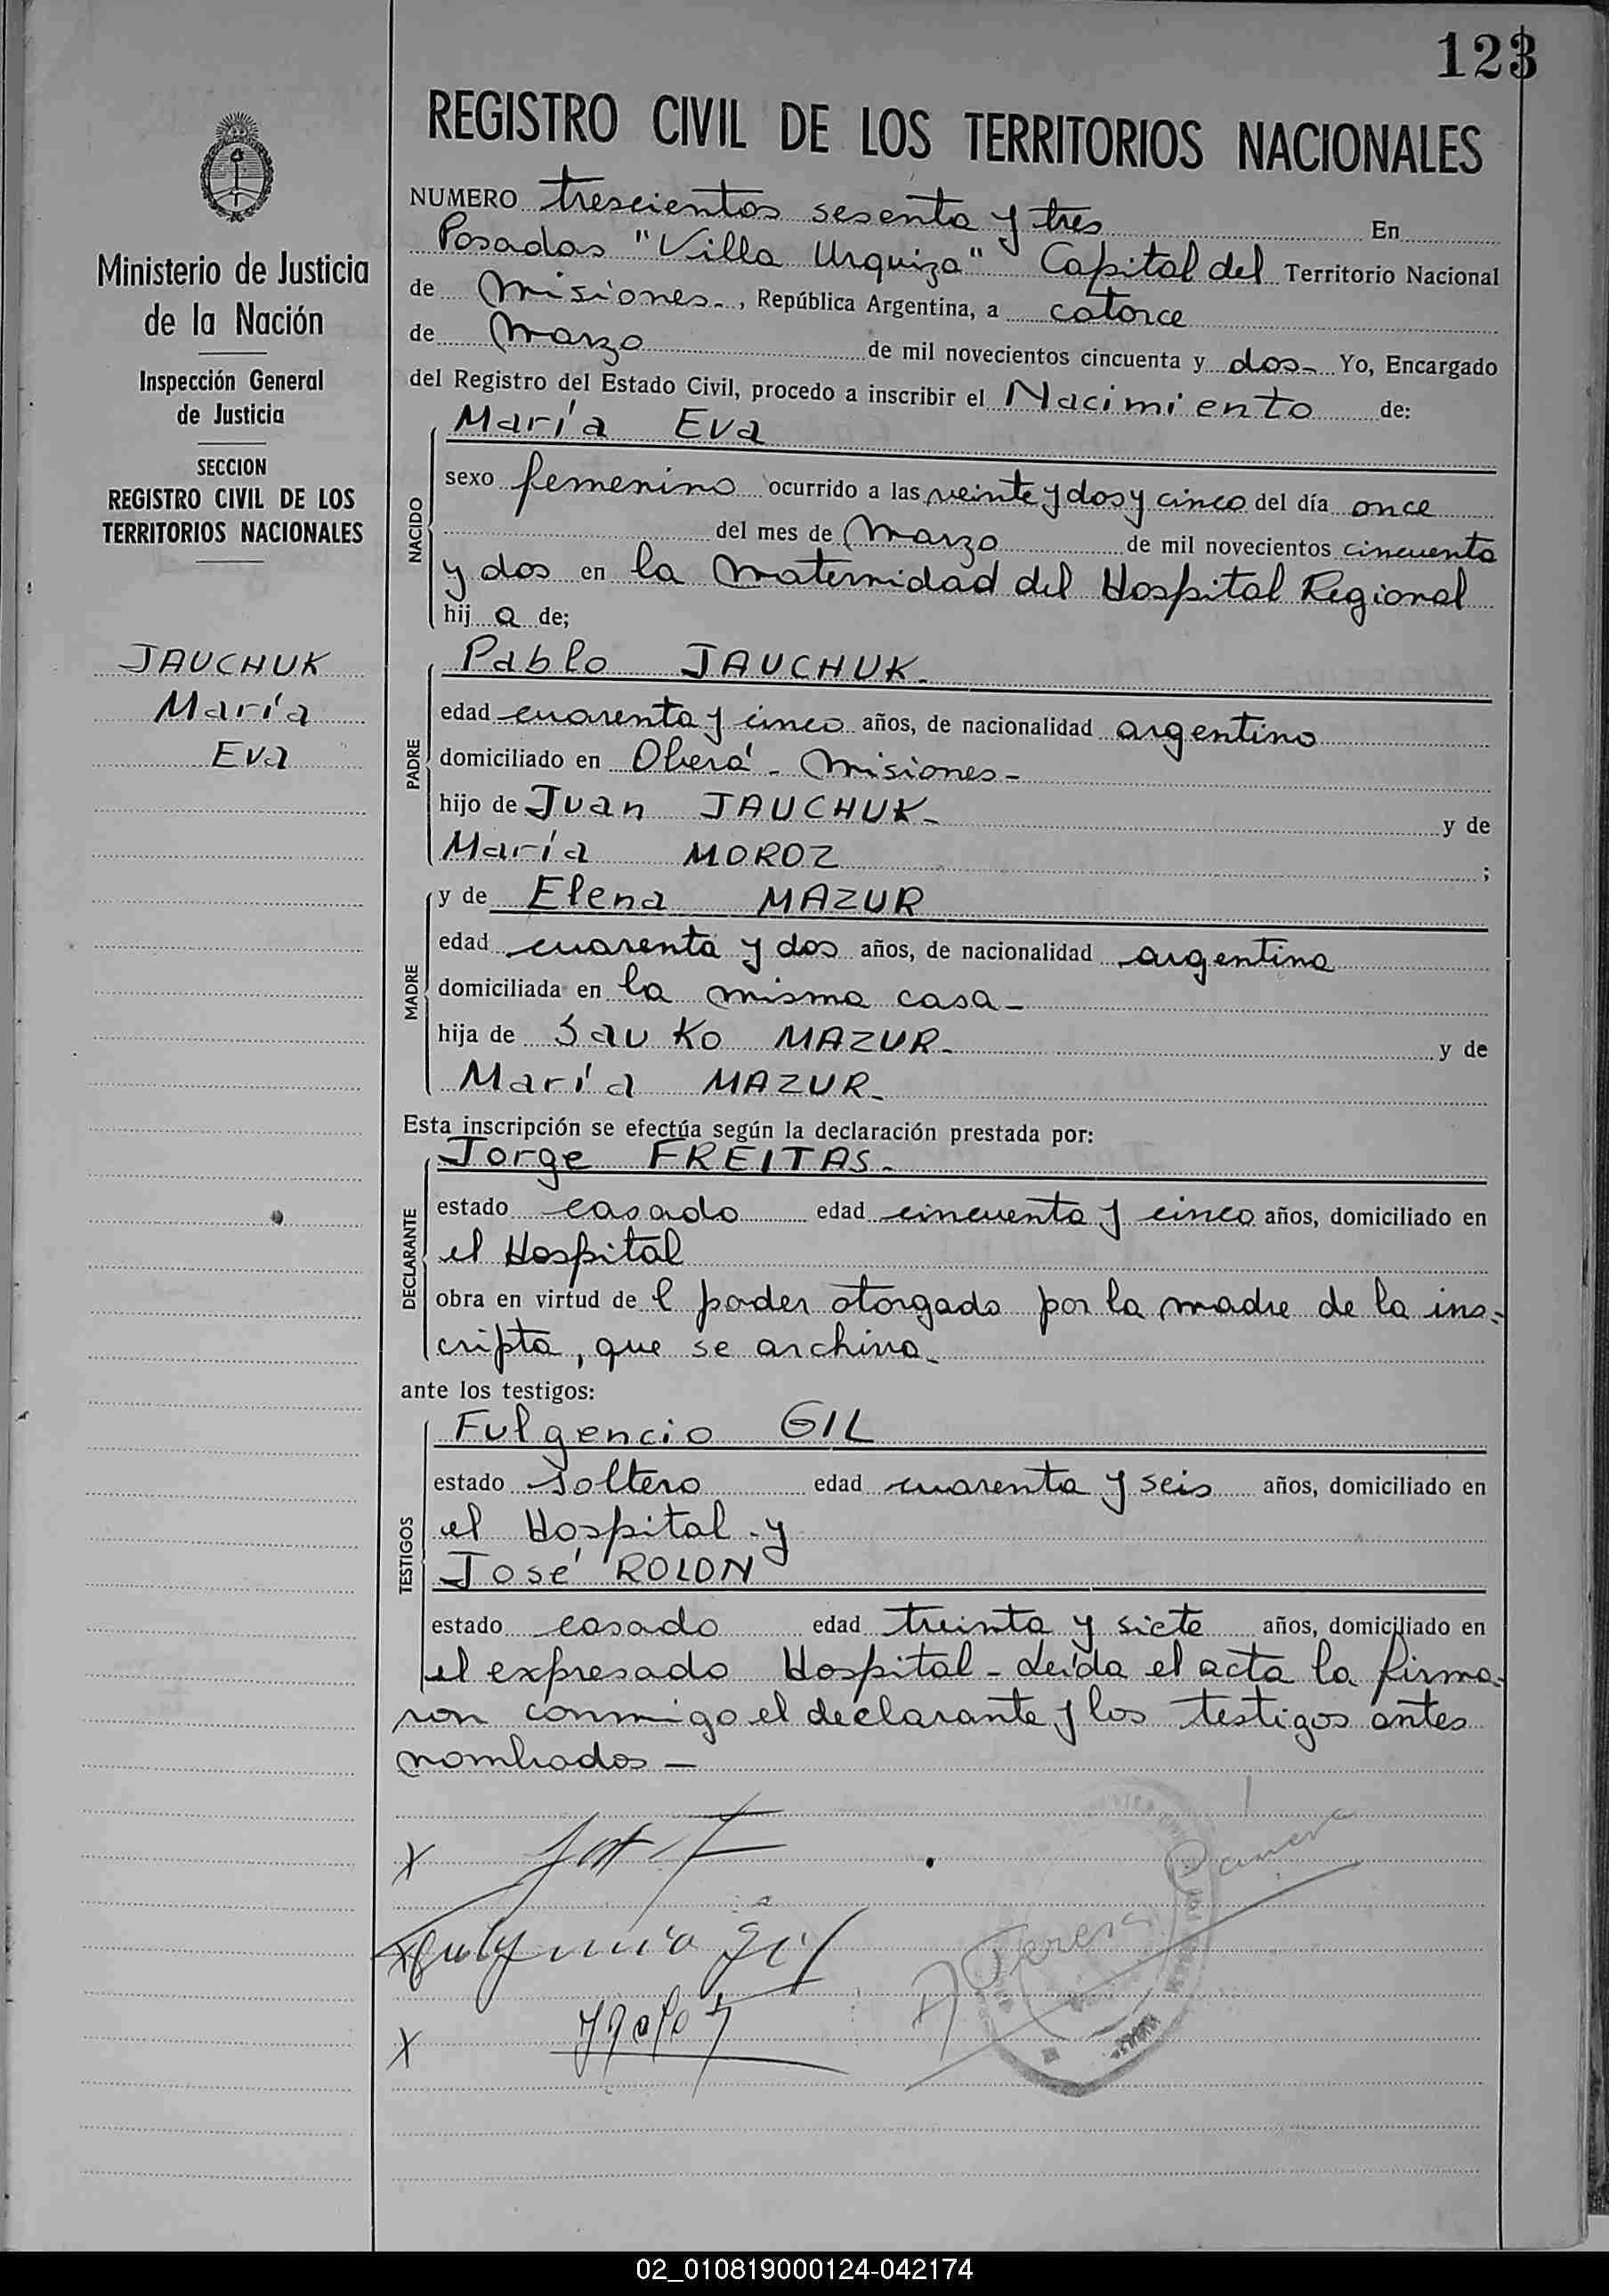 123
REGISTRO CIVIL DE LOS TERRITORIOS NACIONALES
Ministerio de Justicia
de la Nación
Inspección General
de Justicia
SECCION
REGISTRO CIVIL DE LOS
TERRITORIOS NACIONALES
JAUCHUK
María
Eva
NUMERO trescientos sesenta y tres En
Posadas "Villa Urquiza" Capital del Territorio Nacional
de Misiones-, República Argentina, a catorce
de Marzo de mil novecientos cincuenta y dos- Yo, Encargado
del Registro del Estado Civil, procedo a inscribir el Nacimiento de:
NACIDO
María Eva
sexo femenino ocurrido a las veinte y dos y cinco del día once
del mes de Marzo de mil novecientos cincuenta
y dos en la Maternidad del Hospital Regional
hij a de;
PADRE
Pablo JAUCHUK-
edad cuarenta y cinco años, de nacionalidad argentino
domiciliado en Oberá - Misiones-
hijo de Juan JAUCHUK- y de
María MOROZ ;
MADRE
y de Elena MAZUR
edad cuarenta y dos años, de nacionalidad argentina
domiciliada en la misma casa-
hija de Sauko MAZUR- y de
María MAZUR-
Esta inscripción se efectúa según la declaración prestada por:
DECLARANTE
Jorge FREITAS-
estado casado edad cincuenta y cinco años, domiciliado en
el Hospital
obra en virtud de l poder otorgado por la madre de la ins-
cripta, que se archiva-
ante los testigos:
TESTIGOS
Fulgencio GIL
estado soltero edad cuarenta y seis años, domiciliado en
el Hospital y
José ROLON
estado casado edad treinta y siete años, domiciliado en
el expresado Hospital - Leída el acta la firma-
ron conmigo el declarante y los testigos antes
nombrados-
X
Fulgencio Gil
X
02_010819000124-042174